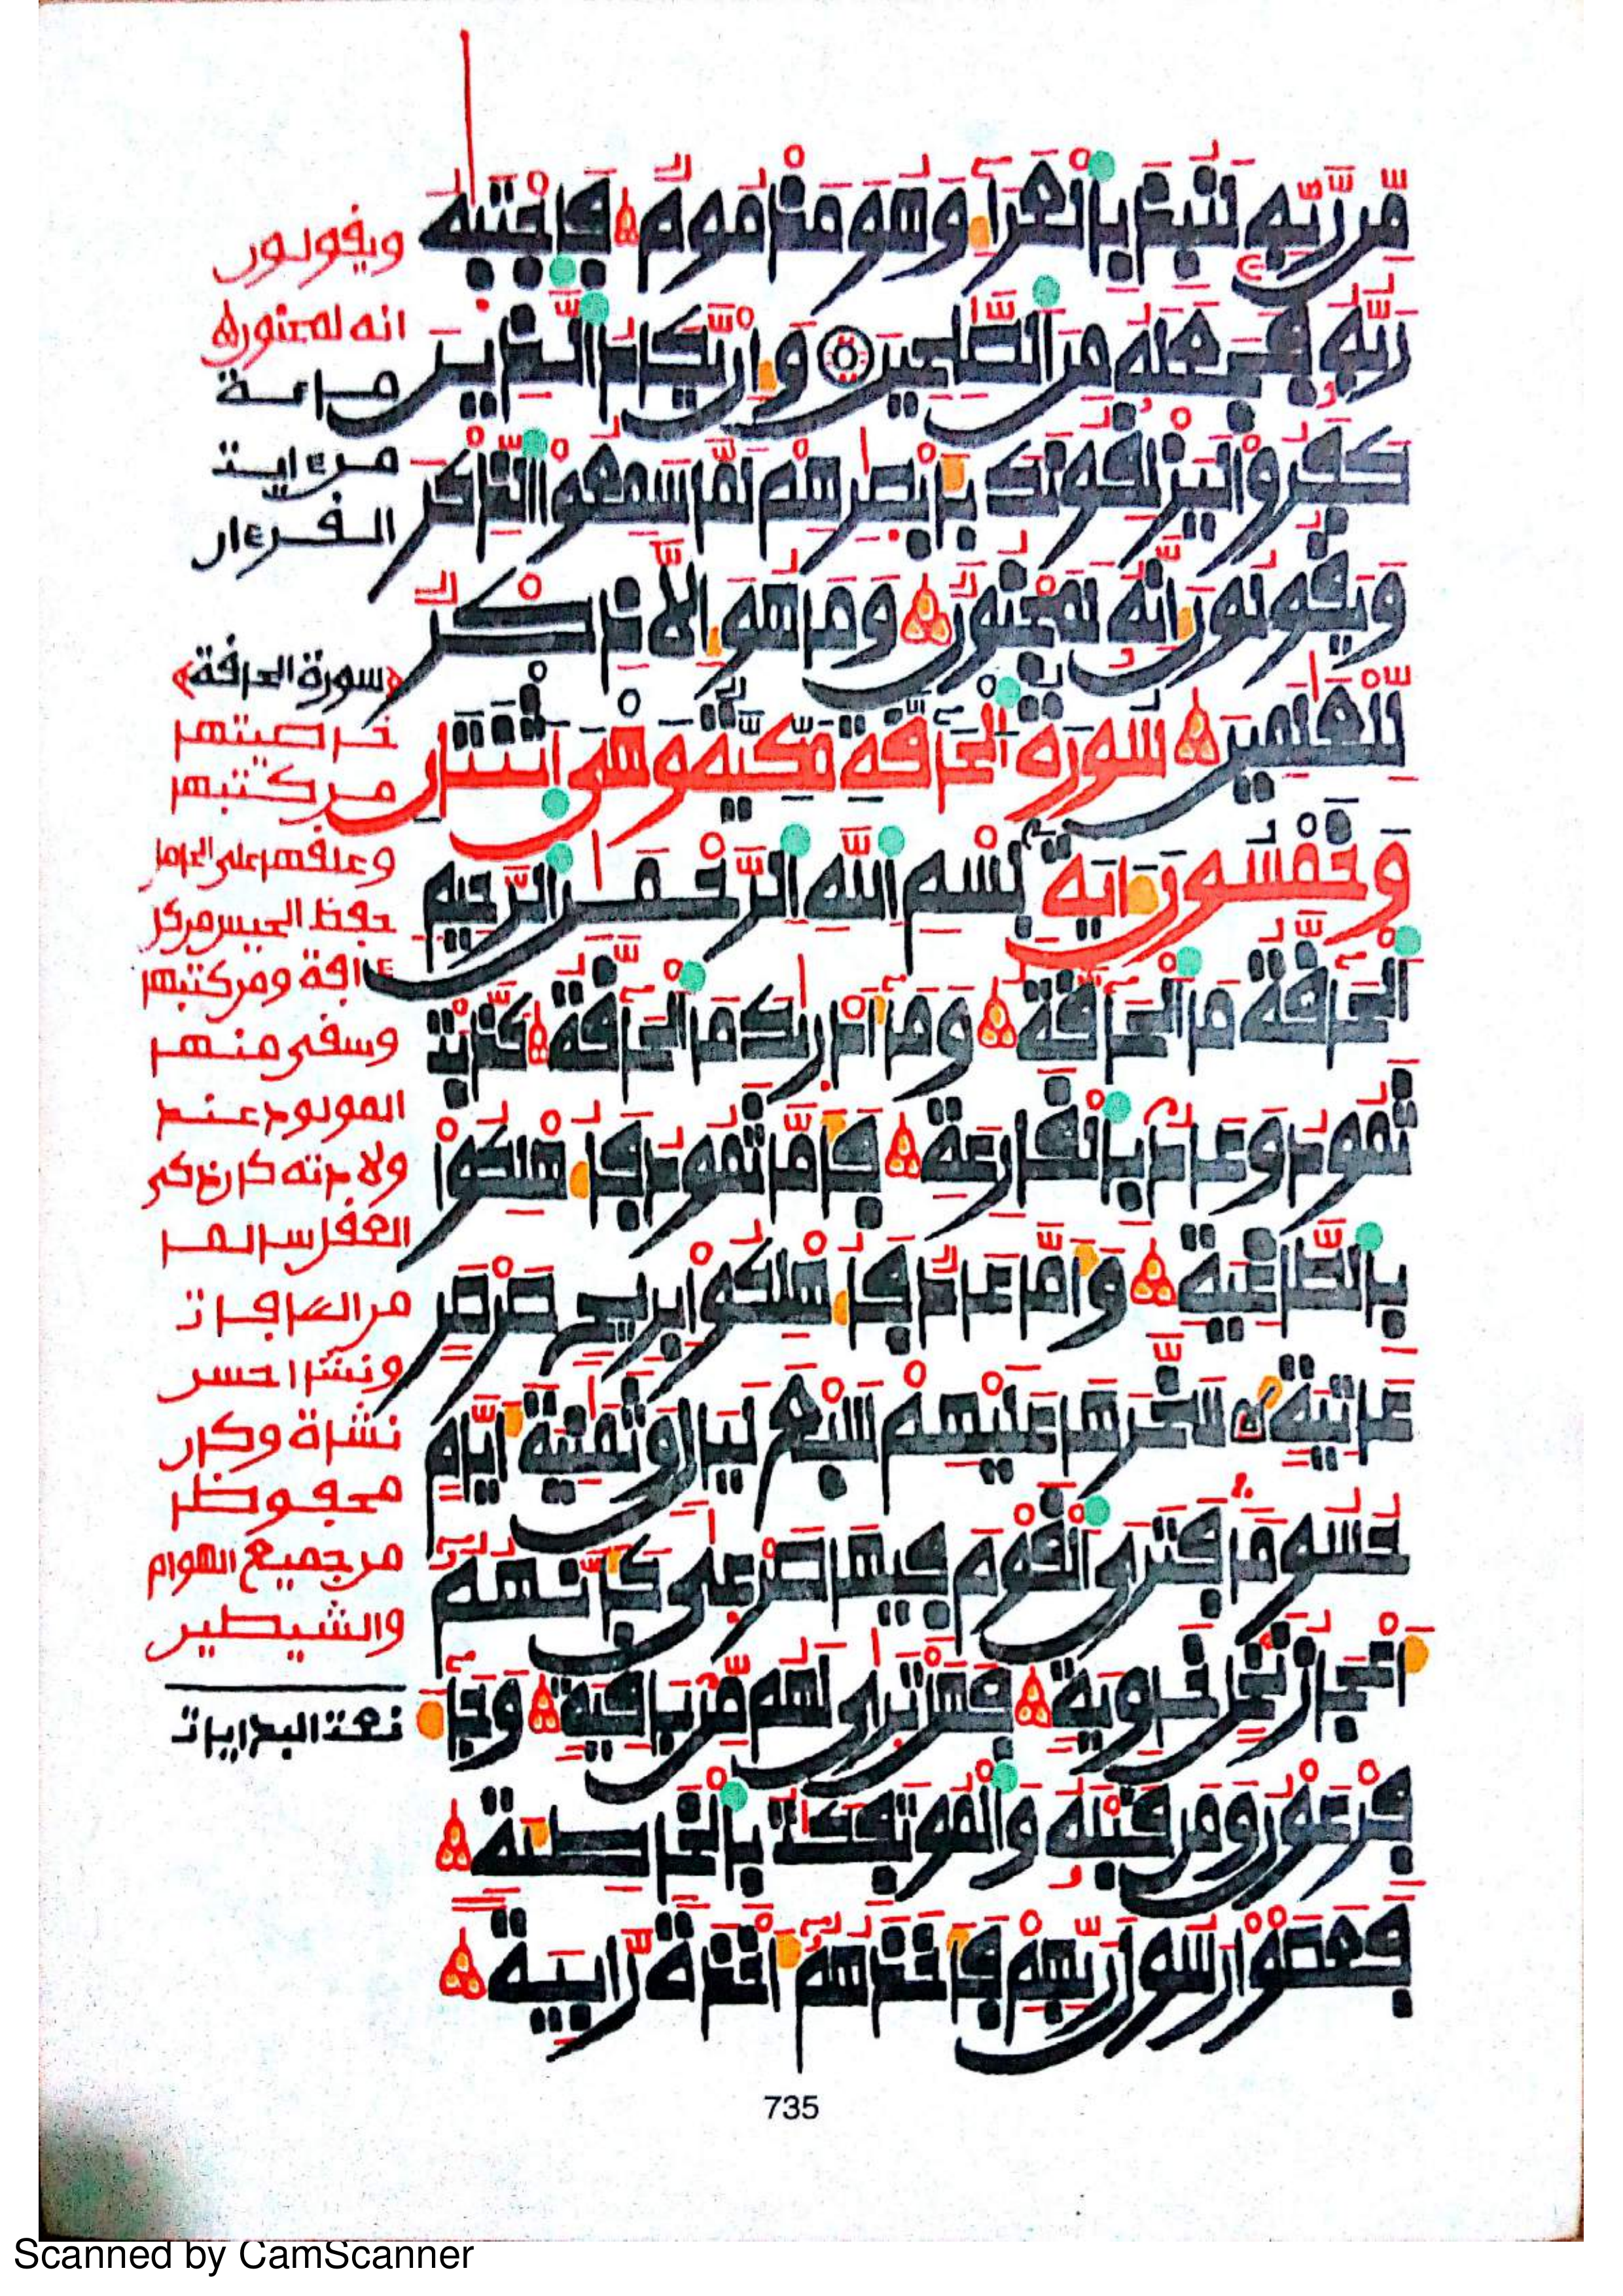 مِّن رَّبِّهِۦ لَنُبِذَ بِالْعَرَآءِ وَهُوَ مَذْمُومٌ فَاجْتَبَٰهُ
رَبُّهُۥ فَجَعَلَهُۥ مِنَ الصَّٰلِحِينَ وَإِن يَّكَادُ الَّذِينَ
كَفَرُوا لَيَزْلِقُونَكَ بِأَبْصَٰرِهِمْ لَمَّا سَمِعُوا الذِّكْرَ
وَيَقُولُونَ إِنَّهُۥ لَمَجْنُونٌ وَمَا هُوَ إِلَّا ذِكْرٌ
لِّلْعَٰلَمِينَ سُورَةُ الْحَآقَّةِ مَكِّيَّةٌ وَهْىَ اثْنَتَانِ
وَخَمْسُونَ ءَايَةً بِسْمِ اللَّهِ الرَّحْمَٰنِ الرَّحِيمِ
الْحَآقَّةُ مَا الْحَآقَّةُ وَمَآ أَدْرَىٰكَ مَا الْحَآقَّةُ كَذَّبَتْ
ثَمُودُ وَعَادٌ بِالْقَارِعَةِ فَأَمَّا ثَمُودُ فَأُهْلِكُوا
بِالطَّاغِيَةِ وَأَمَّا عَادٌ فَأُهْلِكُوا بِرِيحٍ صَرْصَرٍ
عَاتِيَةٍ سَخَّرَهَا عَلَيْهِمْ سَبْعَ لَيَالٍ وَثَمَٰنِيَةَ أَيَّامٍ
حُسُومًا فَتَرَى الْقَوْمَ فِيهَا صَرْعَىٰ كَأَنَّهُمُۥٓ
أَعْجَازُ نَخْلٍ خَاوِيَةٍ فَهَلْ تَرَىٰ لَهُم مِّنۢ بَاقِيَةٍ وَجَآءَ
فِرْعَوْنُ وَمَن قَبْلَهُۥ وَالْمُوتَفِكَٰتُ بِالْخَاطِئَةِ
فَعَصَوْا رَسُولَ رَبِّهِمْ فَأَخَذَهُمُۥٓ أَخْذَةً رَّابِيَةً
ويقولون
انه لمجنون
من ءاية
القرءان
سورة الحاقة
خاصيتها
من كتبها
وعلقها على الحامل
حفظ الجنين من كل
ءافة ومن كتبها
وسقى منها
المولود عند
ولادته كان ذكى
العقل سالما
من الافات
ونشأ احسن
نشأة وكان
محفوظا
من جميع الهوام
والشيطين
735
Scanned by CamScanner